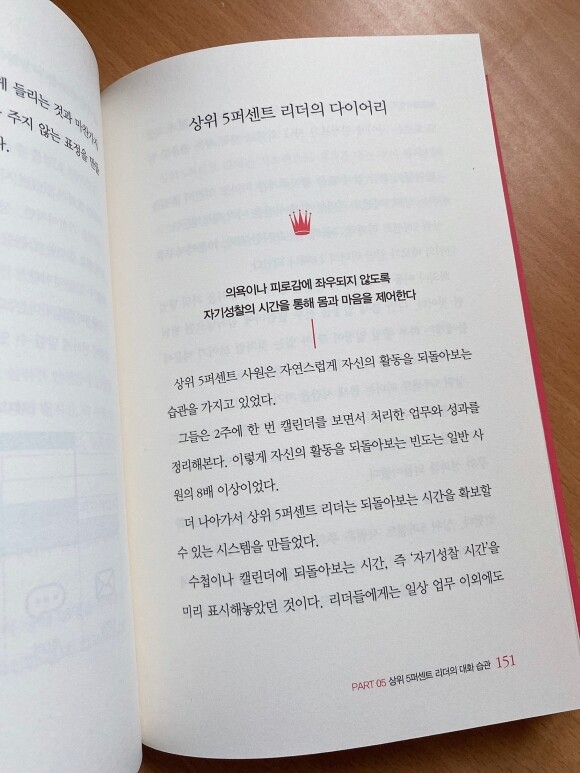 들리는 것과 마찬가지
주지 않는 표정을 만들
다.
상위 5퍼센트 리더의 다이어리
의욕이나 피로감에 좌우되지 않도록
자기성찰의 시간을 통해 몸과 마음을 제어한다
상위 5퍼센트 사원은 자연스럽게 자신의 활동을 되돌아보는
습관을 가지고 있었다.
그들은 2주에 한 번 캘린더를 보면서 처리한 업무와 성과를
정리해본다. 이렇게 자신의 활동을 되돌아보는 빈도는 일반 사
원의 8배 이상이었다.
더 나아가서 상위 5퍼센트 리더는 되돌아보는 시간을 확보할
수 있는 시스템을 만들었다.
수첩이나 캘린더에 되돌아보는 시간, 즉 ‘자기성찰 시간’을
미리 표시해놓았던 것이다. 리더들에게는 일상 업무 이외에도
PART 05 상위 5퍼센트 리더의 대화 습관 151